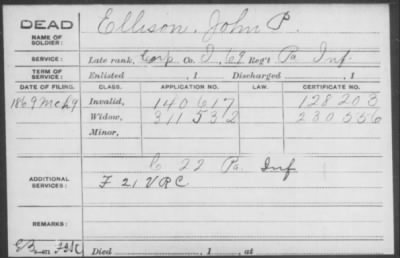 DEAD
NAME OF SOLDIER: Ellison, John P.
SERVICE: Late rank, Corp Co. I, 69 Reg't Pa Inf.
TERM OF SERVICE: Enlisted , 1 Discharged , 1
DATE OF FILING. CLASS. APPLICATION NO. LAW. CERTIFICATE NO.
1869 Mch 9 Invalid, 140617 128203
Widow, 311532 230556
Minor,
ADDITIONAL SERVICES: C 22 Pa. Inf
F 21 V R C
REMARKS:
Died , 1 , at